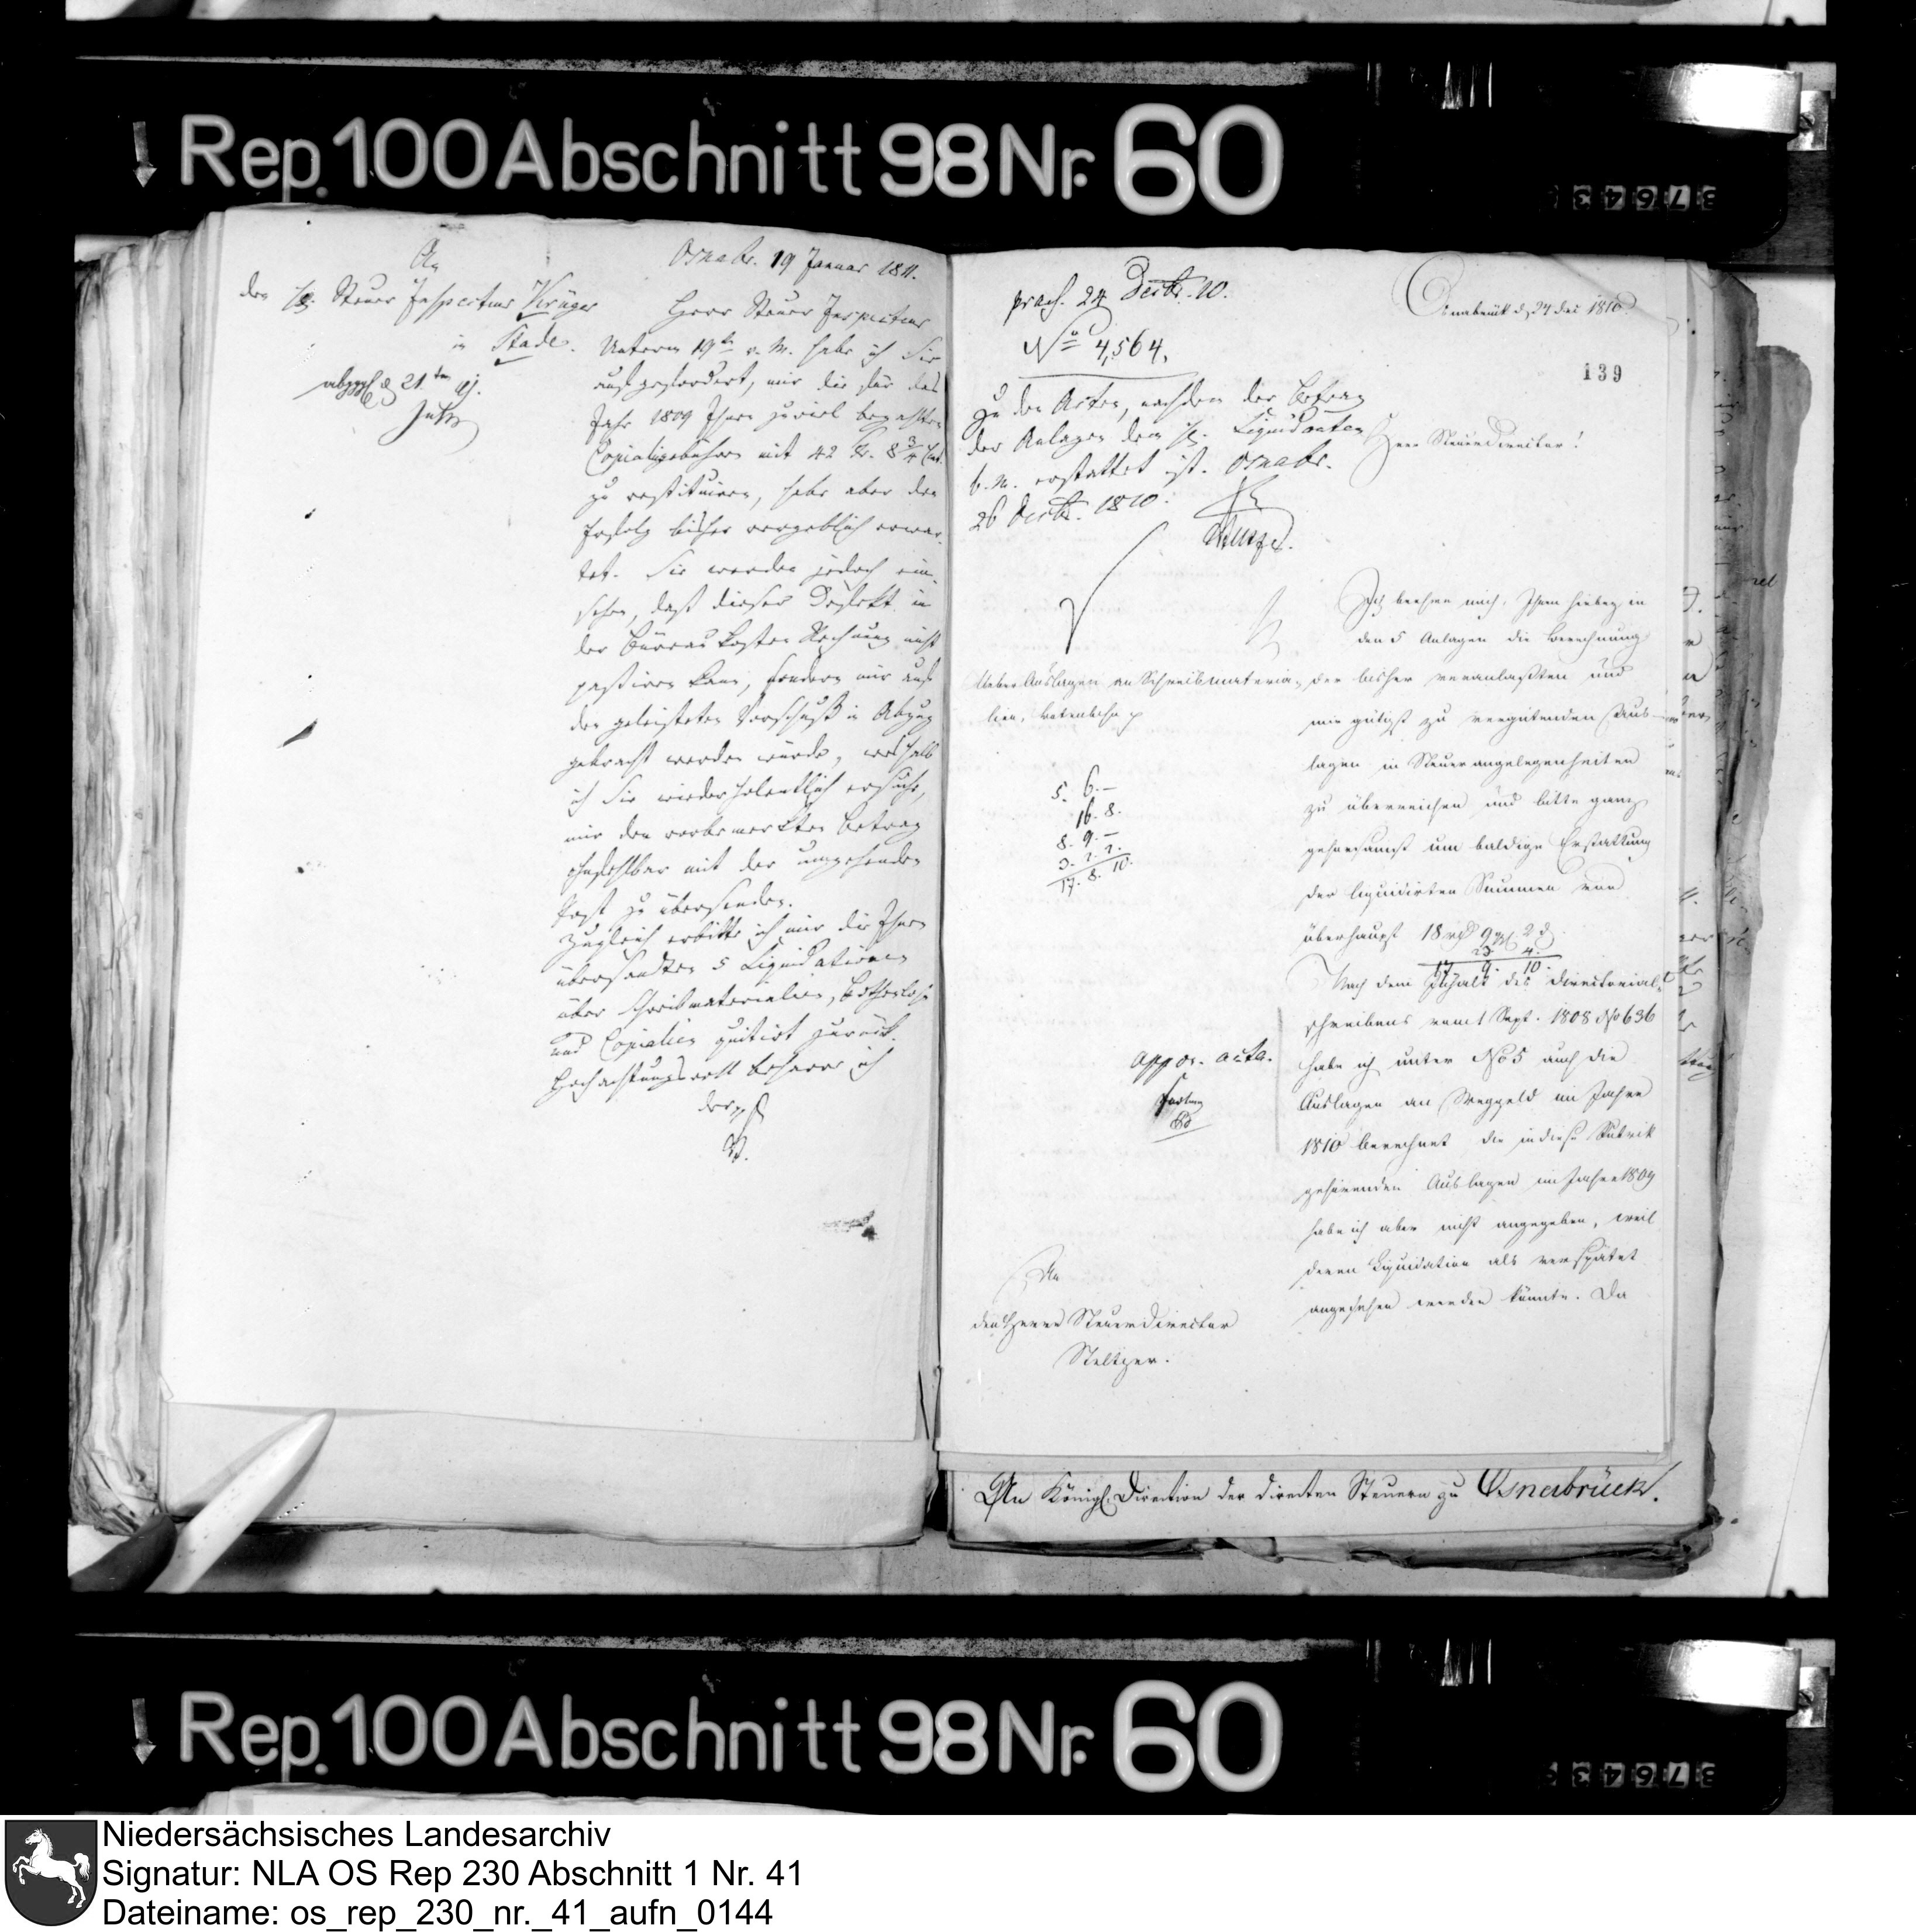 Rep. 100 Abschnitt 98 Nr. 60
An
den H. Steuer Inspecteur Krüger
in Stade.
Osnabr. 19 Januar 1811.
Herr Steuer Inspecteur
Unterm 19ten v. M. habe ich Sie
aufgefordert, mir die für das
Jahr 1809 Ihnen zuviel bezahlten
Copialgebühren mit 42 Fr. 8¾ Cent.
zu restituiren, habe aber den
Erfolg bisher vergeblich erwar-
tet. Sie werden jedoch ein-
sehen, daß dieser Defekt in
der Büreau kosten Rechnung nicht
passiren kann, sondern mir auf
den geleisteten Vorschuß in Abzug
gebracht werden würde, weshalb
ich Sie wiederholentlich ersuche,
mir den vorbemerkten Betrag
ohnfehlbar mit der umgehenden
Post zu übersenden.
Zugleich erbitte ich mir die Ihnen
übersandten 5 Liquidationen
über Schreibmaterialien, Bothenlohn
und Copialien quitirt zurück.
Hochachtungsvoll beharre ich
praes. 24 Decbr. 10.
No 4,564.
zu den Acten, nachdem der Betrag
der Anlagen dem H. Liquidanten
b. m. erstattet ist. Osnabr.
26 Decbr. 1810.
Osnabrück d. 24 Dec 1810
139
Herr Steuerdirector!
Ueber Auslagen an Schreibmateria-
lien, Botenlohn p
5. 6. –
16. 8.
8. 9. –
3. 1. 2.
17. 8. 10.
Ich beehre mich, Ihnen hiebey in
den 5 Anlagen die Berechnung
der bisher veranlaßten und
mir gütigst zu vergütenden Aus-
lagen in Steuerangelegenheiten
zu überreichen und bitte ganz
gehorsamst um baldige Erstattung
der liquidirten Summen von
überhaupt 18 rt 9 ggl 2 d
23. 4.
17 9. 10.
Nach dem Inhalt des Directorial-
schreibens vom 1 Sept. 1808 No 636
habe ich unter No 5 auch die
Auslagen an Weggeld im Jahre
1810 berechnet die in diese Rubrik
gehörenden Auslagen im Jahre 1809
habe ich aber nicht angegeben, weil
deren Liquidation als verspätet
angesehen werden könnte. Da
app. or. acta.
An
den Herrn Steuerdirector
Steltzer.
An Königl. Direction der directen Steuern zu Osnabrück.
Rep. 100 Abschnitt 98 Nr. 60
Niedersächsisches Landesarchiv
Signatur: NLA OS Rep 230 Abschnitt 1 Nr. 41
Dateiname: os_rep_230_nr._41_aufn_0144